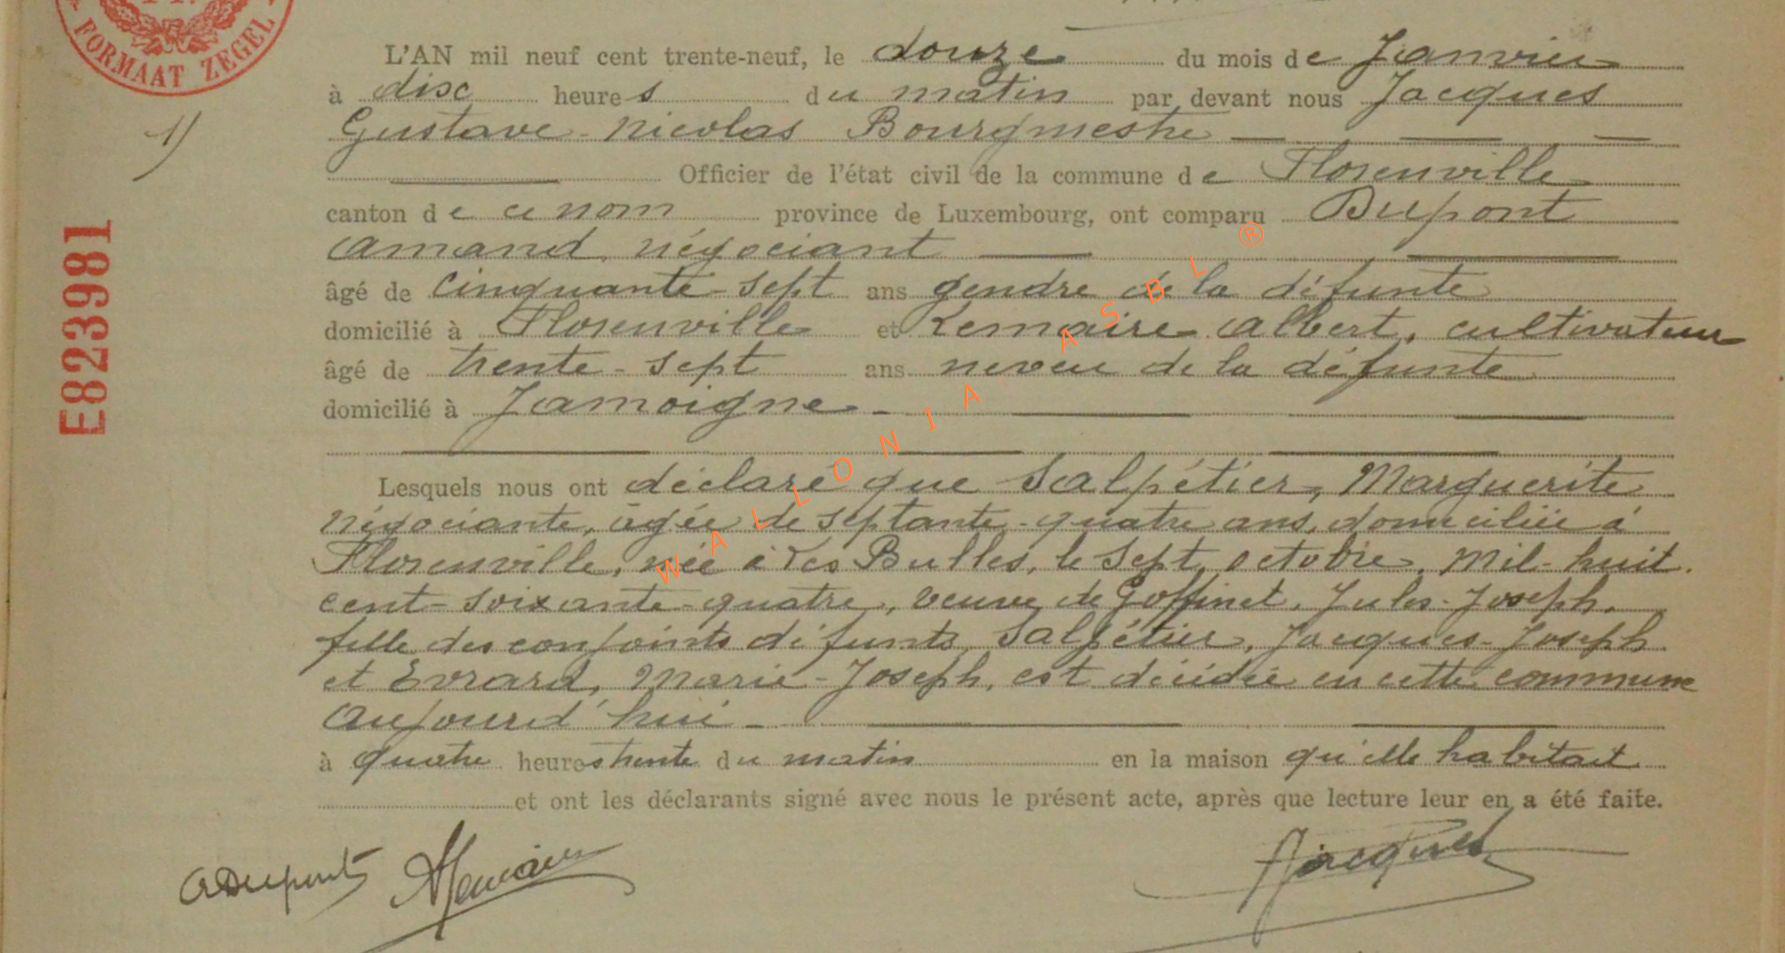 FORMAAT ZEGEL
E823981
1)
L'AN mil neuf cent trente-neuf, le douze du mois de Janvier
à disc heures du matin par devant nous Jacques
Gustave-Nicolas Bourgmestre
Officier de l'état civil de la commune de Florenville
canton de ce nom province de Luxembourg, ont comparu Dupont
Amand, négociant
âgé de cinquante-sept ans gendre de la défunte
domicilié à Florenville et Lemaire Albert, cultivateur
âgé de trente-sept ans neveu de la défunte
domicilié à Jamoigne
Lesquels nous ont déclaré que Salpétier, Marguerite
négociante, âgée de septante-quatre ans, domiciliée à
Florenville, née à Les Bulles, le sept octobre, mil-huit
cent-soixante-quatre, veuve de Goffinet, Jules-Joseph,
fille des conjoints défunts, Salpétier, Jacques-Joseph
et Evrard, Marie-Joseph, est décédée en cette commune
aujourd'hui
à quatre heures trente du matin en la maison qu'elle habitait
et ont les déclarants signé avec nous le présent acte, après que lecture leur en a été faite.
ADupont ALemaire Jacques
WALLONIA ASBL ®